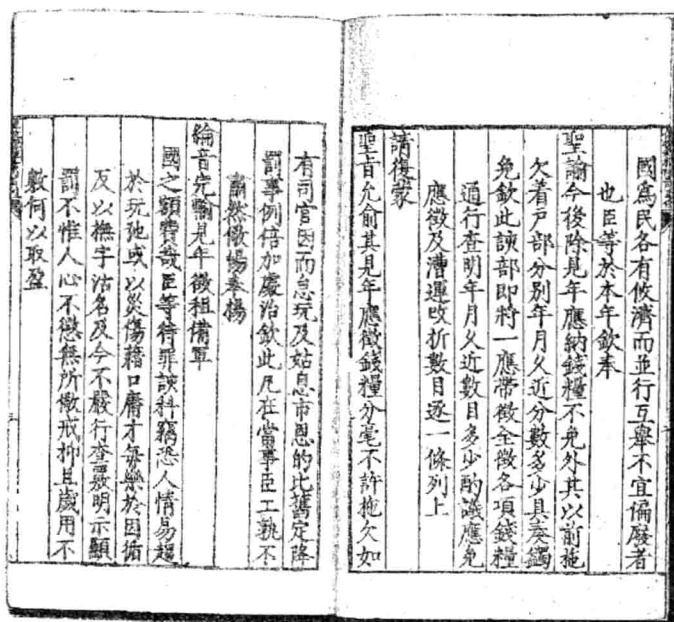 國爲民各有攸濟而並行互舉不宜偏廢者
也臣等於本年欽奉
聖諭今後除見年應納錢糧不免外其以前拖
欠着戶部分別年月久近分數多少具奏蠲
免欽此該部即將一應帶徵全徵各項錢糧
通行查明年月久近數目多少酌議應免
應徵及漕運改折數目逐一條列上
請復蒙
聖旨允俞其見年應徵錢糧分毫不許拖欠如
有司官因而怠玩及姑息市恩的比舊定降
罰事例倍加處治欽此凡在當事臣工孰不
肅然儆惕奉揚
綸音完輸見年徵租備軍
國之額費哉臣等待罪該科竊恐人情易趨
於玩弛或以災傷藉口庸才每樂於因循
及以撫字沽名及今不嚴行查覈明示顯
罰不惟人心不懲無所儆戒抑且歲用不
敷何以取盈